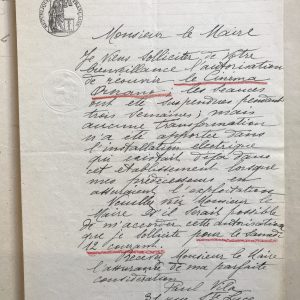 Monsieur le Maire
Je viens solliciter de votre
bienveillance l'autorisation
de réouvrir le Cinéma
les séances
ont été suspendues pendant
trois semaines; mais
aucune transformation
n'a été apportée dans
l'installation électrique
qui existait déjà dans
cet établissement lorsque
mes prédécesseurs en
assuraient l'exploitation
Veuillez voir Monsieur le
Maire s'il serait possible
de m'accorder cette autorisation
que je sollicite pour le Samedi
12 courant.
Recevez Monsieur le Maire
l'assurance de ma parfaite
considération
Paul Vila
31 rue